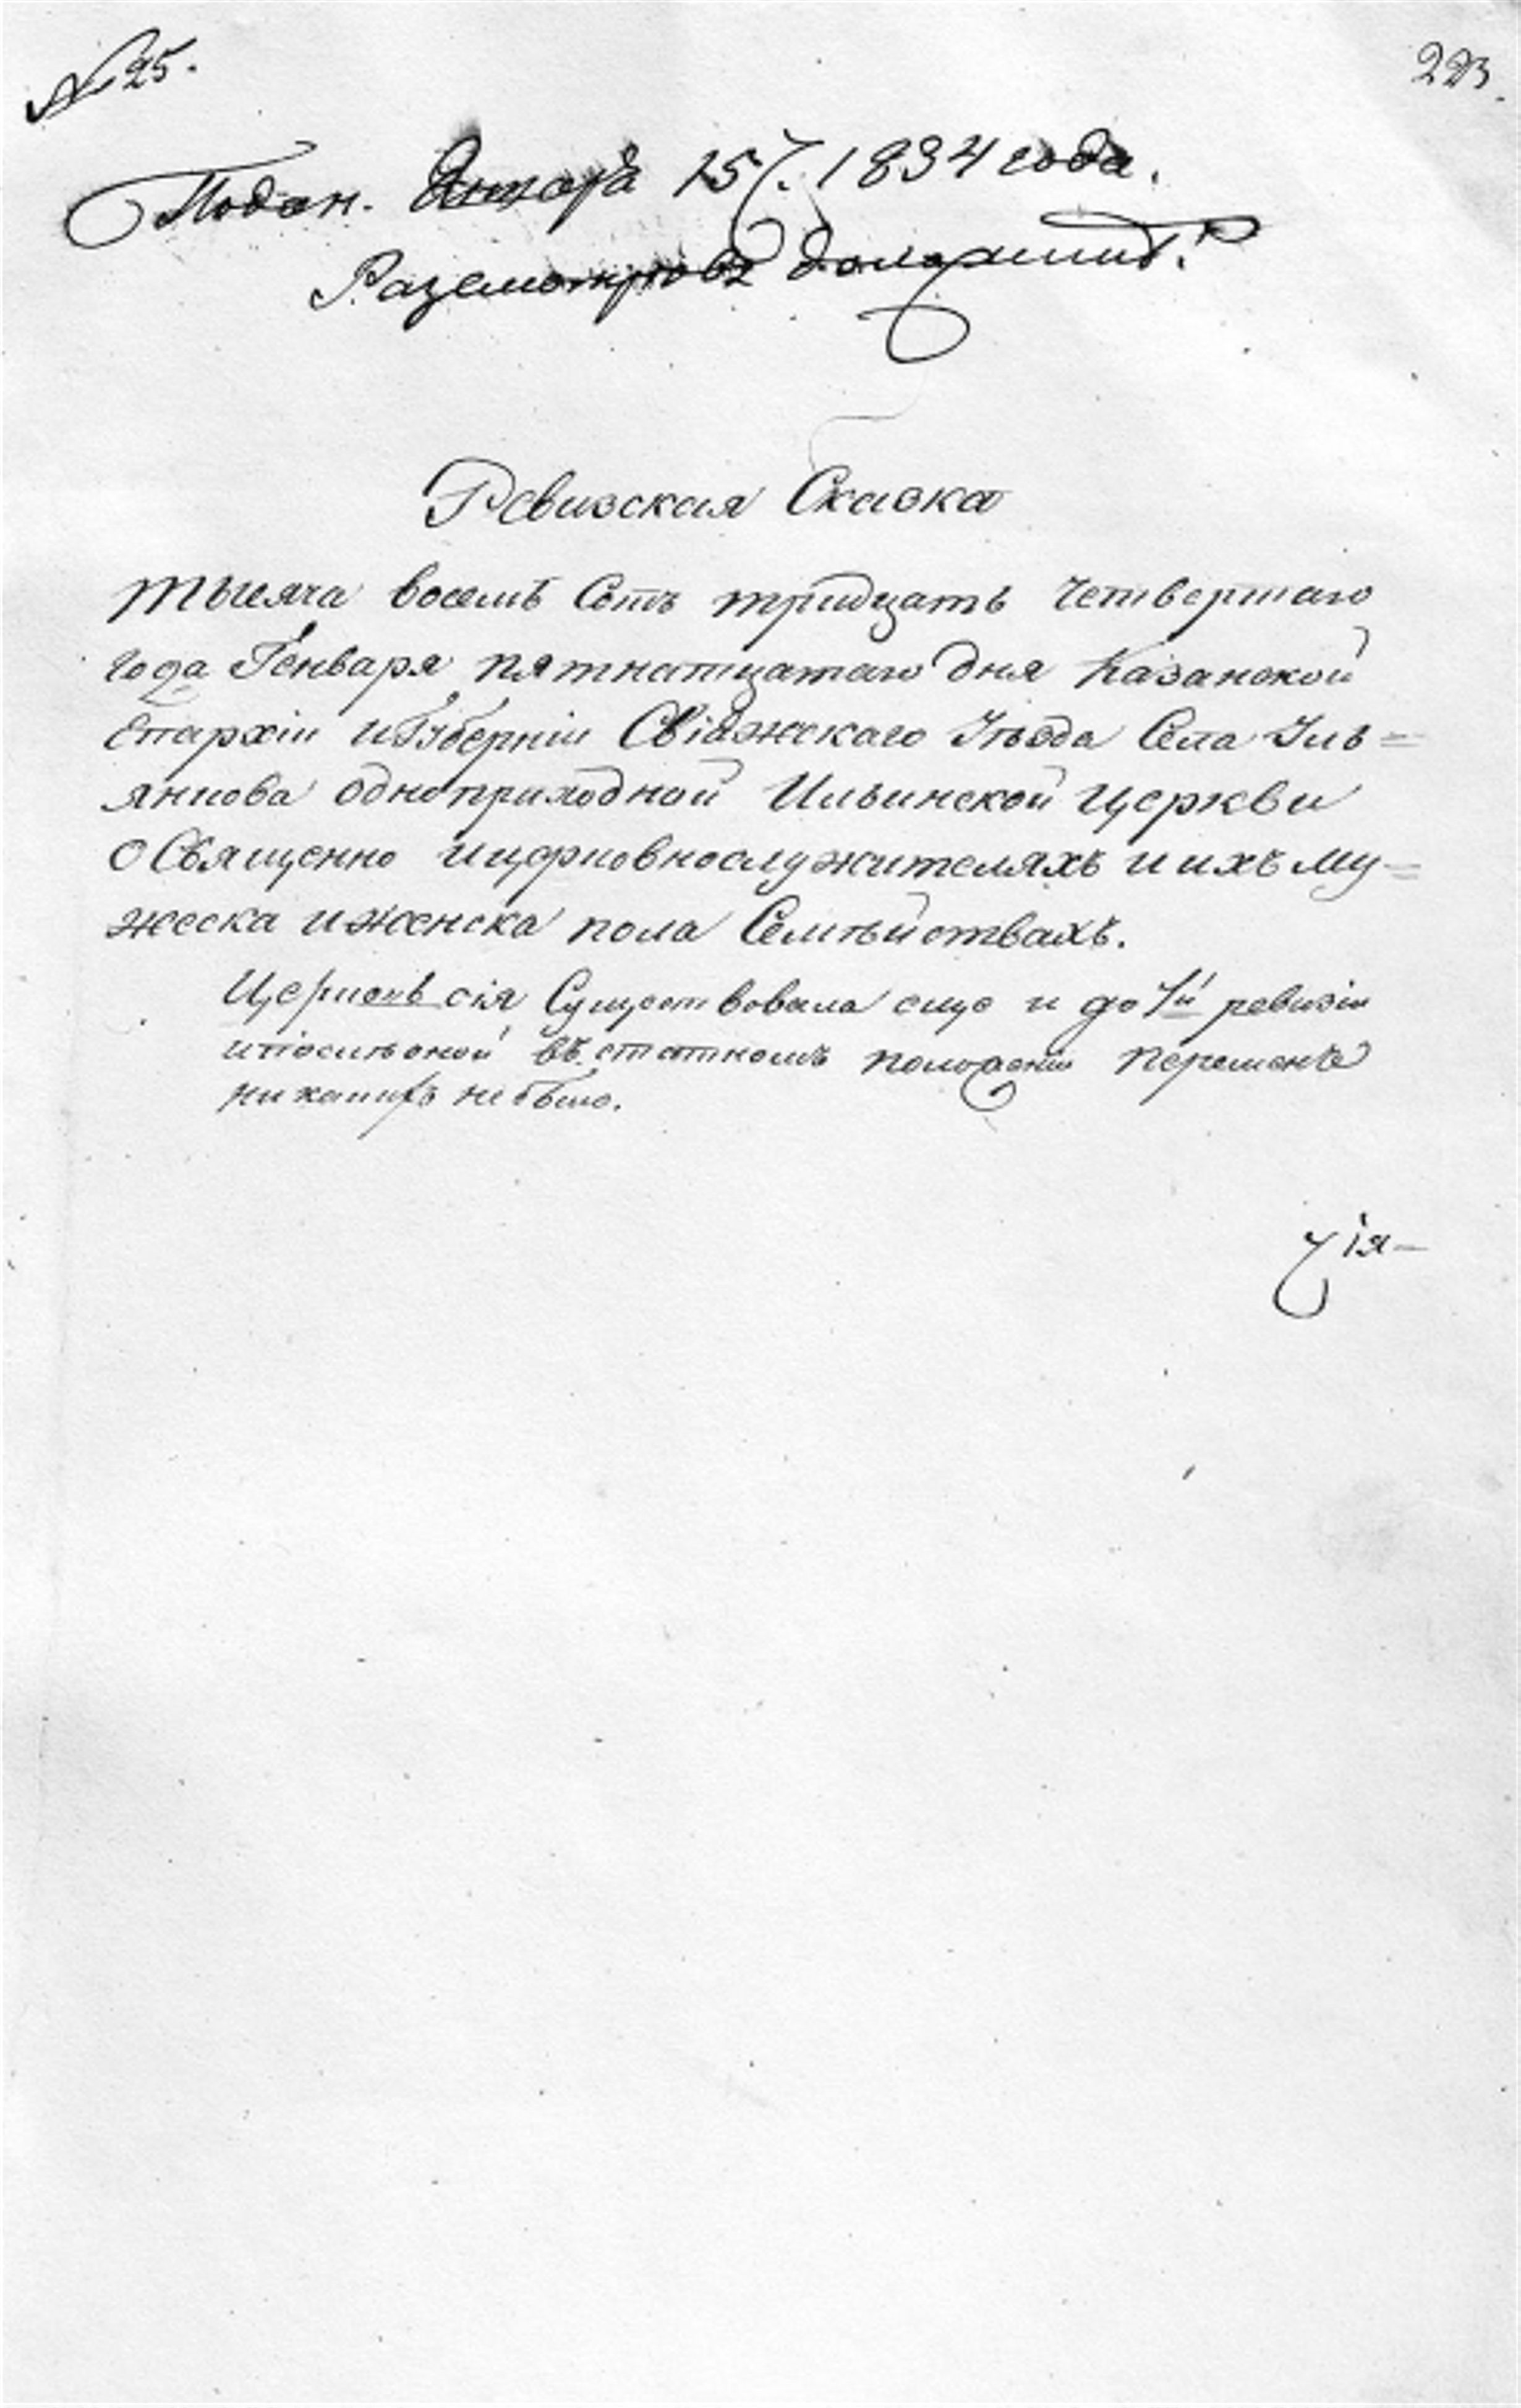 № 25.
223.
Подан. Января 15 /. 1834 года.
Разсмотревъ доложить.
Ревизская Сказка
тысяча восемь Сотъ тридцать четвертаго
года Генваря пятнатцатаго дня Казанской
Епархіи и Губерніи Свіяжскаго Уѣзда Села Уль=
янкова одноприходной Ильинской Церкви
о Священно и церковнослужителяхъ и ихъ му=
жеска и женска пола Семѣйствахъ.
Церковь сія Существовала еще и до 7й ревизіи
и послѣ оной въ статномъ положеніи перемѣнъ
никакихъ небыло.